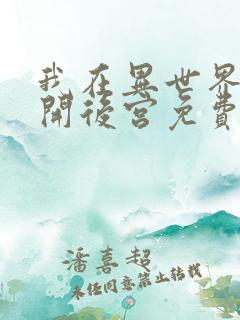 我在異世界
開後宮免費
潘喜超
未任同意禁止转载